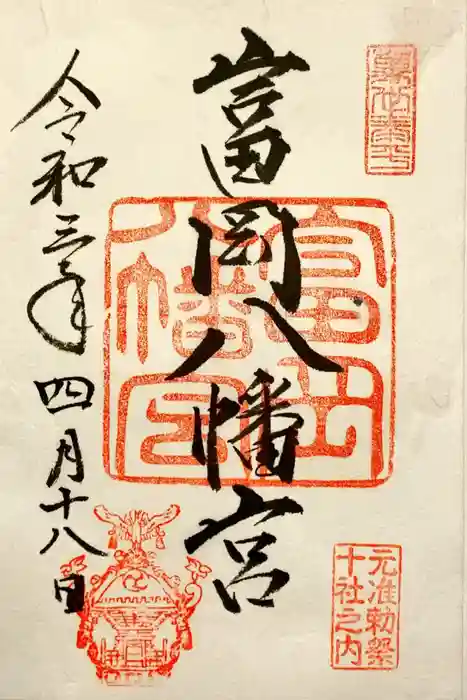 富岡八幡宮
令和三年四月十八日
富岡
八幡宮
元准勅祭
十社之内